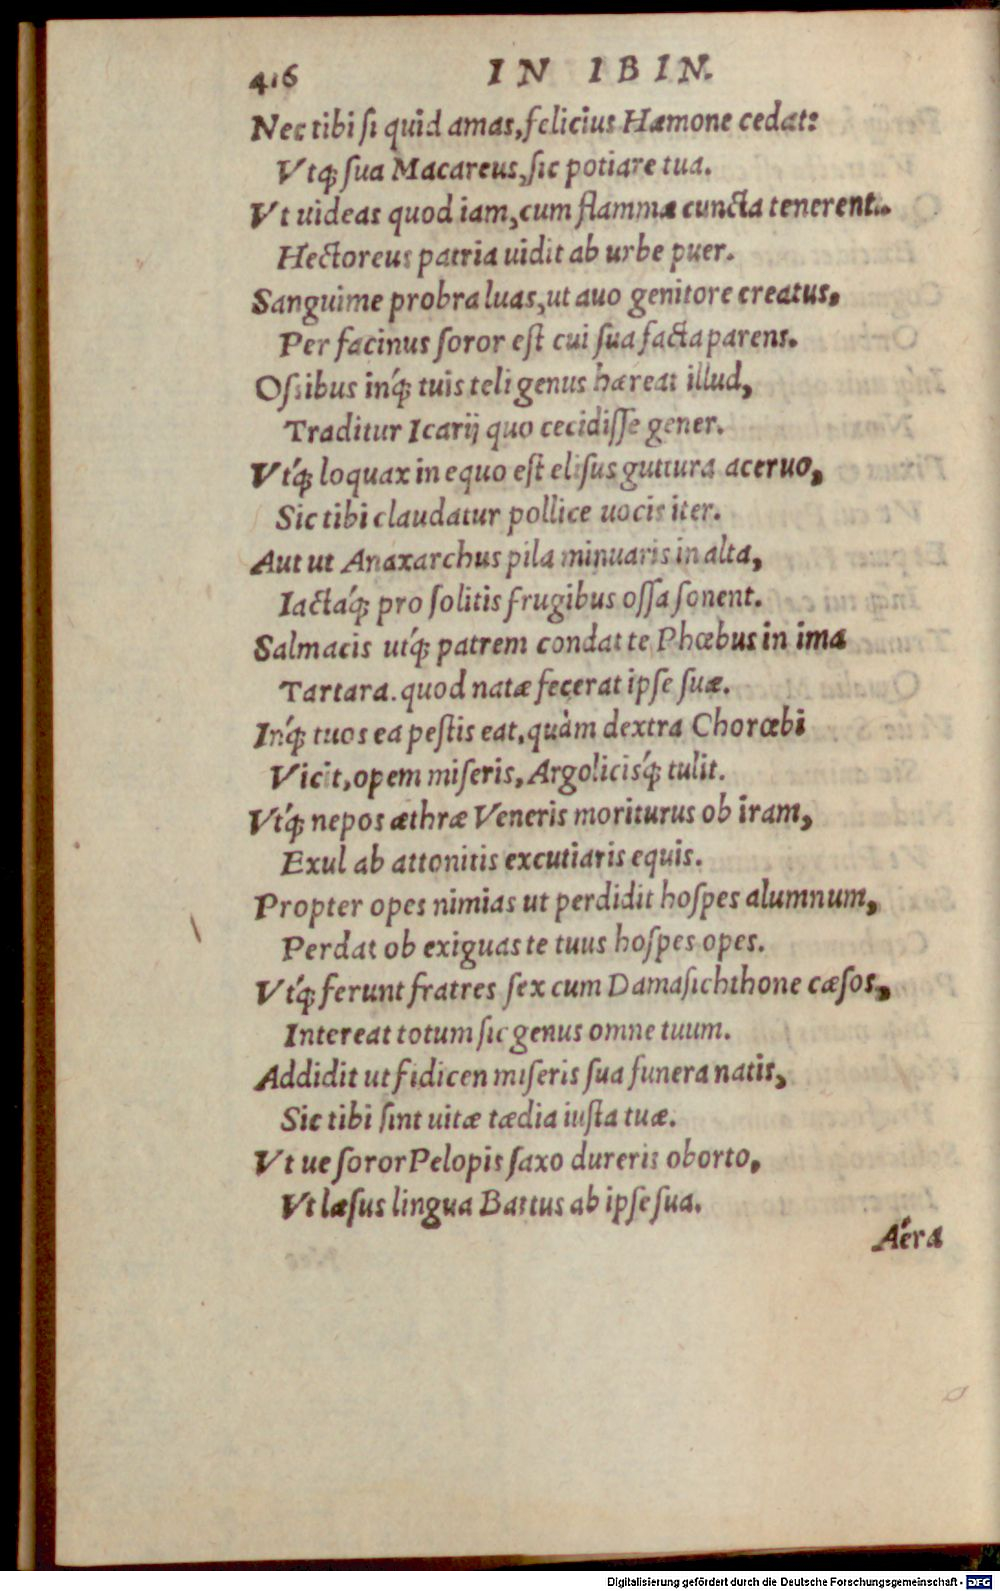 416 IN IBIN.
Nec tibi ſi quid amas, felicius Hæmone cedat:
Vtq́; ſua Macareus, ſic potiare tua.
Vt uideas quod iam, cum flammæ cuncta tenerent..
Hectoreus patria uidit ab urbe puer.
Sanguime probra luas, ut auo genitore creatus,
Per facinus ſoror eſt cui ſua facta parens.
Oſsibus inq́; tuis teli genus hæreat illud,
Traditur Icarij quo cecidiſſe gener.
Vtq́; loquax in equo eſt eliſus guttura acerno,
Sic tibi claudatur pollice uocis iter.
Aut ut Anaxarchus pila minuaris in alta,
Iactaq́; pro ſolitis frugibus oſſa ſonent.
Salmacis utq́; patrem condat te Phœbus in ima
Tartara. quod natæ fecerat ipſe ſuæ.
Inq́; tuos ea peſtis eat, quàm dextra Chorœbi
Vicit, opem miſeris, Argolicisq́; tulit.
Vtq́; nepos æthræ Veneris moriturus ob iram,
Exul ab attonitis excutiaris equis.
Propter opes nimias ut perdidit hoſpes alumnum,
Perdat ob exiguas te tuus hoſpes opes.
Vtq́; ferunt fratres ſex cum Damaſichthone cæſos,
Intereat totum ſic genus omne tuum.
Addidit ut fidicen miſeris ſua funera natis,
Sic tibi ſint uitæ tædia iuſta tuæ.
Vt ue ſoror Pelopis ſaxo dureris oborto,
Vt læſus lingua Battus ab ipſe ſua.
Aéra
Digitalisierung gefördert durch die Deutsche Forschungsgemeinschaft - DFG